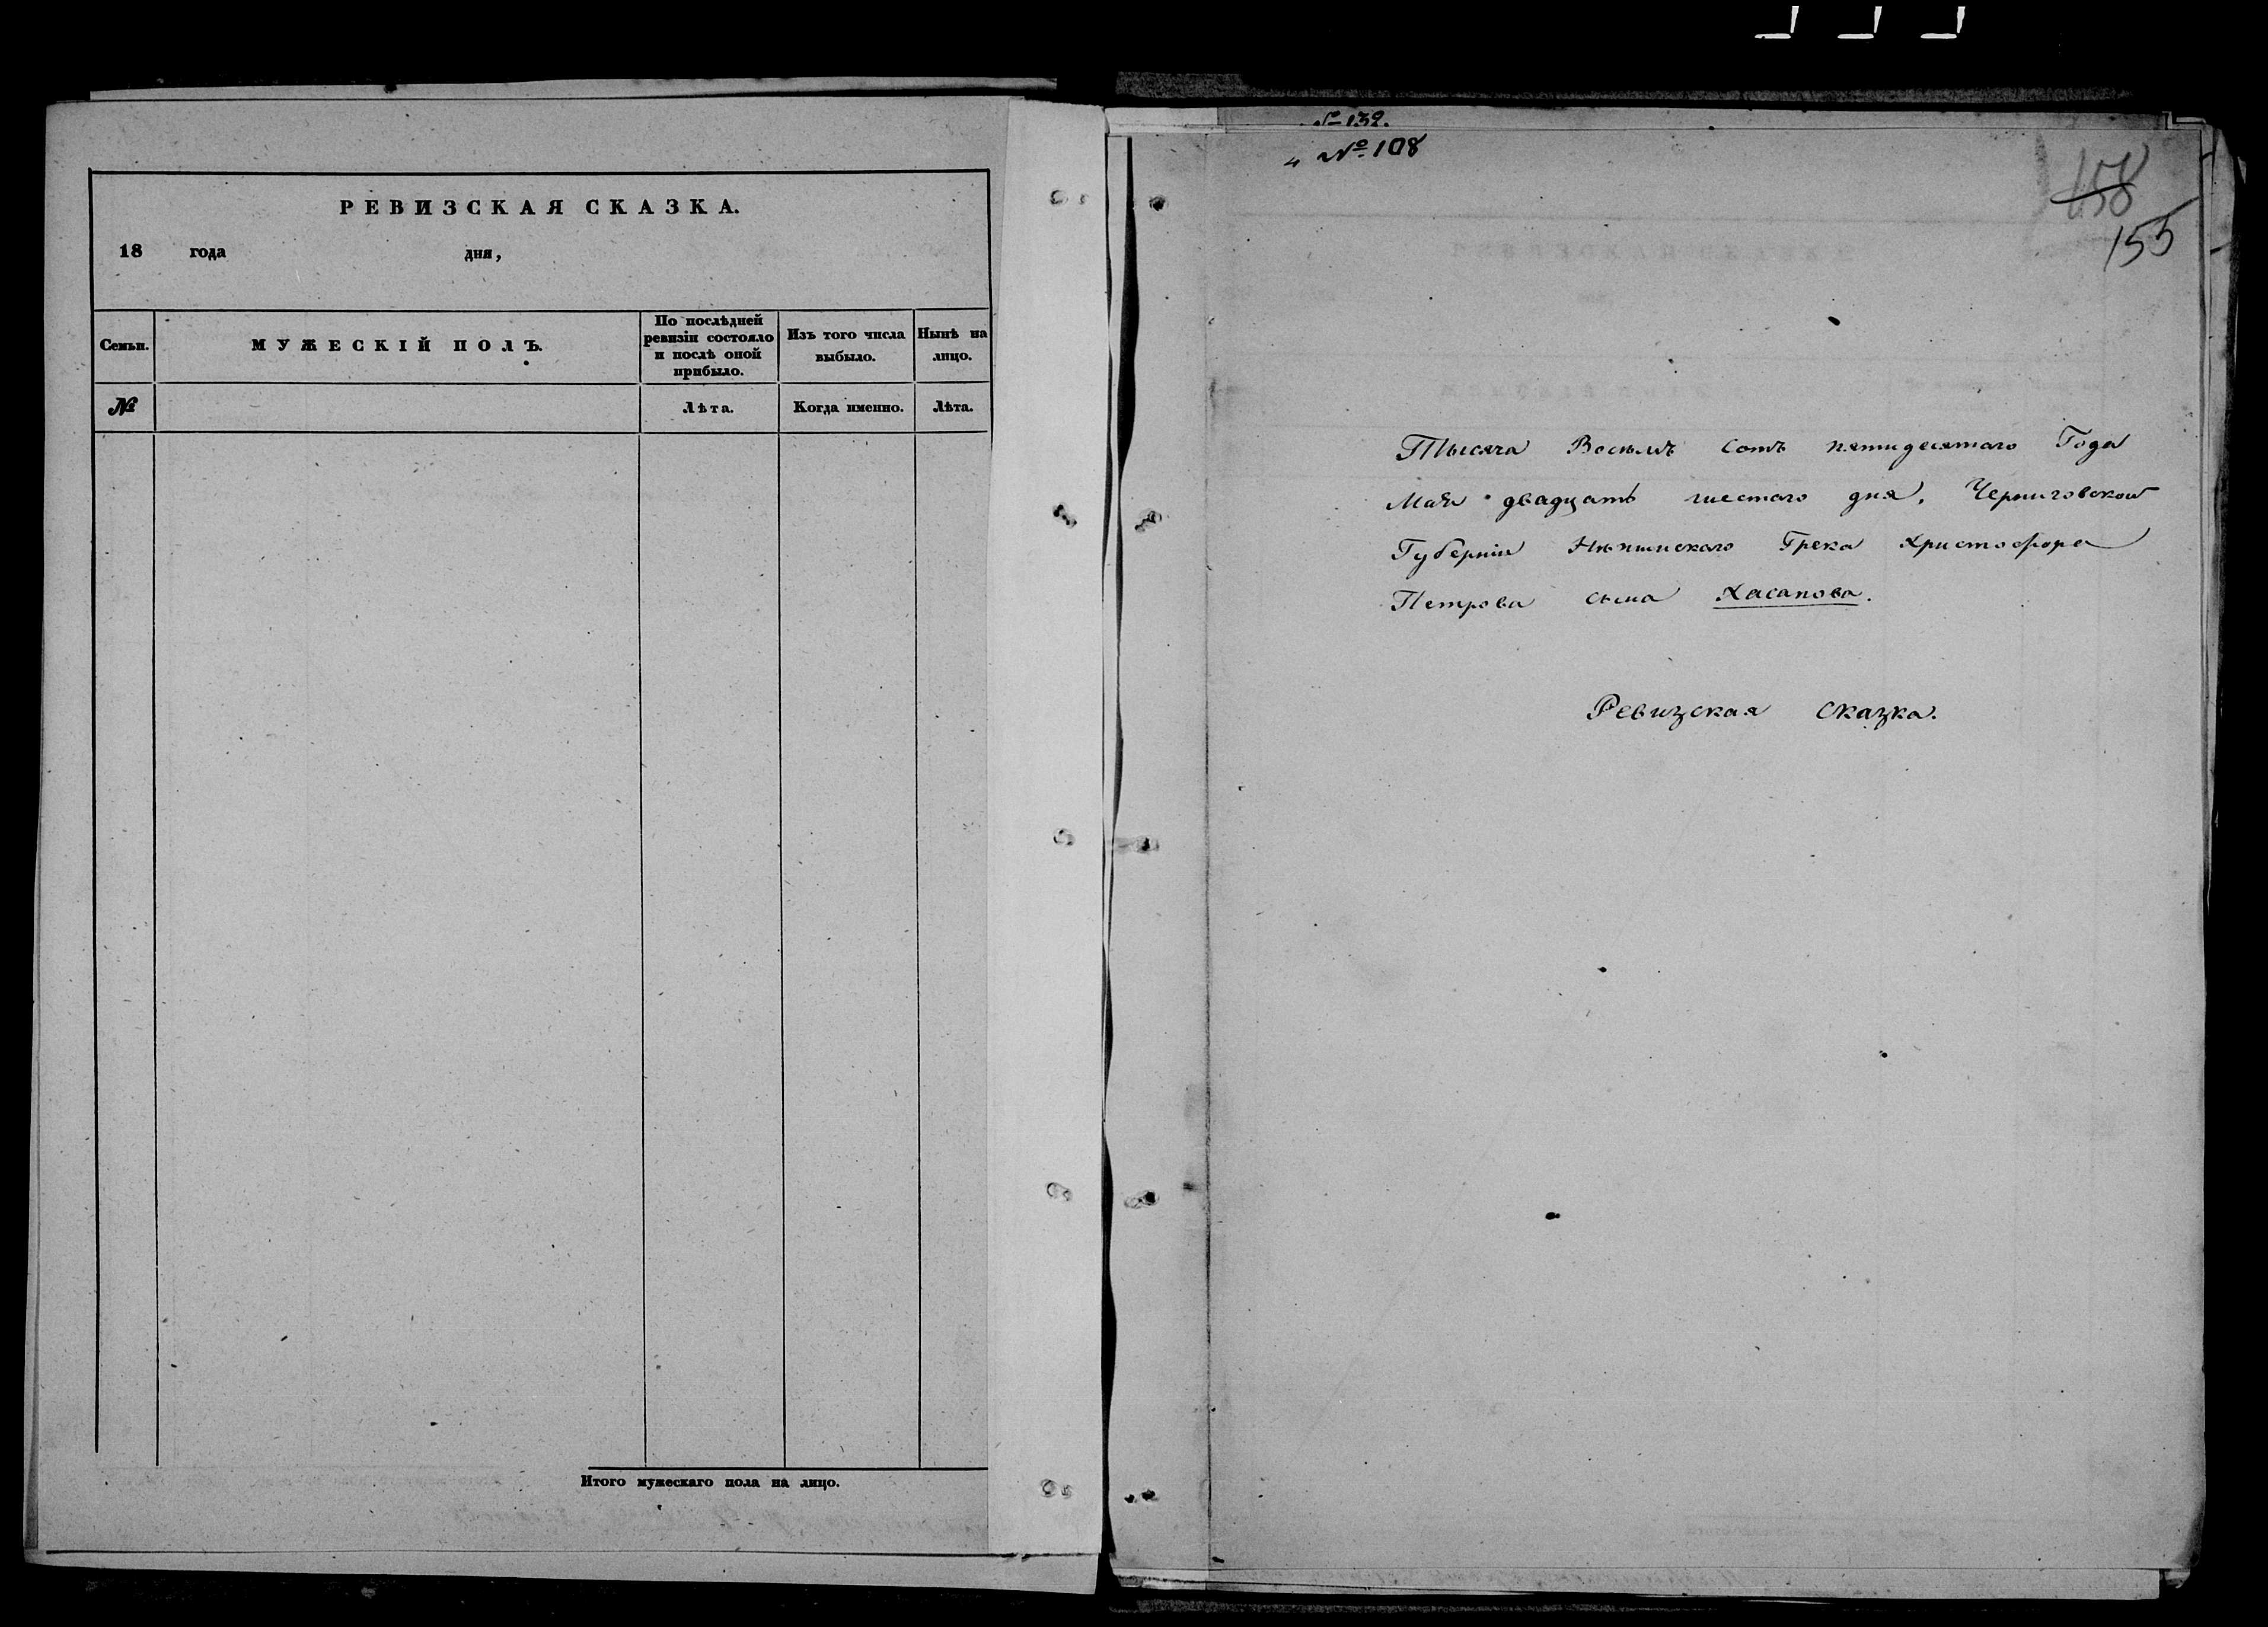 РЕВИЗСКАЯ СКАЗКА.
18 года дня,
Семьи. МУЖЕСКІЙ ПОЛЪ. По послѣдней ревизіи состояло и послѣ оной прибыло. Изъ того числа выбыло. Нынѣ на лицо.
№ Лѣта. Когда именно. Лѣта.
Итого мужескаго пола на лицо.
№ 132.
№ 108
158
155
Тысяча Восемь сотъ пятидесятаго Года
Мая двадцать шестаго дня, Черниговской
Губерніи Нѣжинскаго Грека Христофора
Петрова сына Хасапова.
Ревизская сказка.